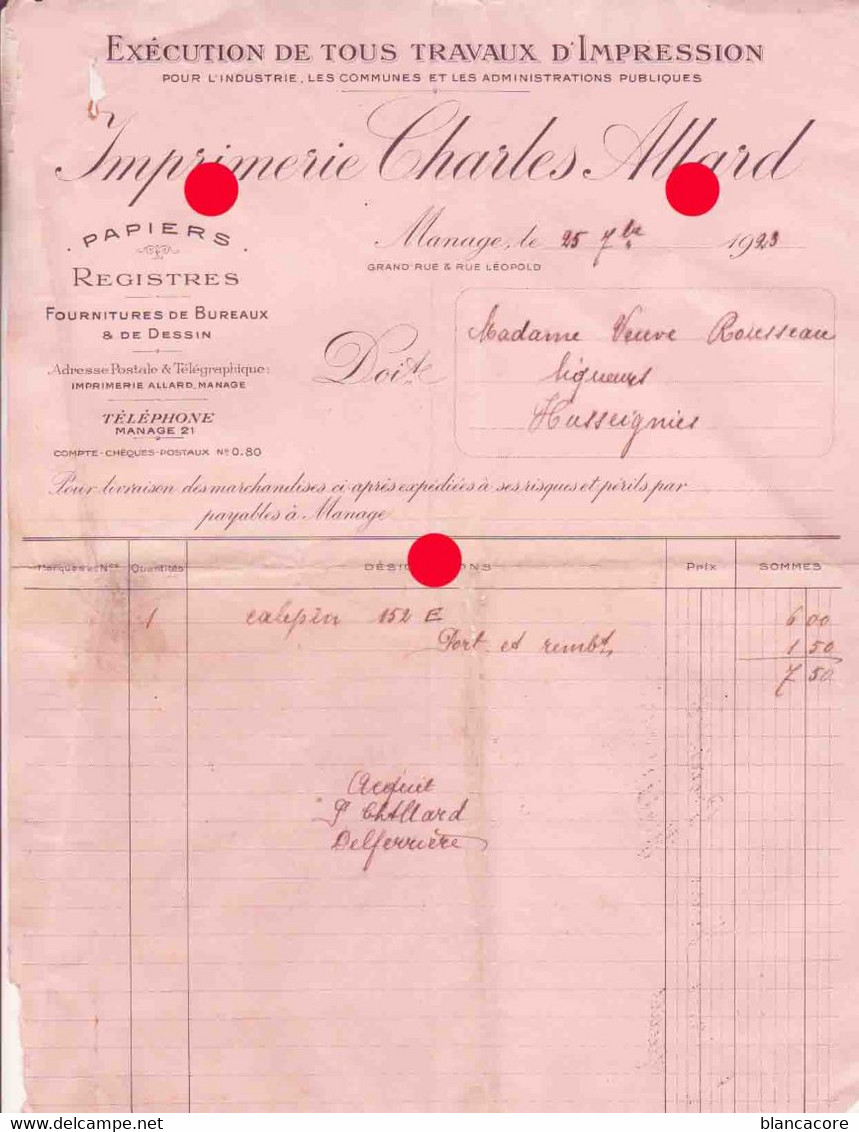 EXÉCUTION DE TOUS TRAVAUX D'IMPRESSION
POUR L'INDUSTRIE, LES COMMUNES ET LES ADMINISTRATIONS PUBLIQUES
Imprimerie Charles Allard
Manage, le 25 7bre 1923
GRAND'RUE & RUE LÉOPOLD
PAPIERS
REGISTRES
FOURNITURES DE BUREAUX
& DE DESSIN
Adresse Postale & Télégraphique:
IMPRIMERIE ALLARD, MANAGE
TÉLÉPHONE
MANAGE 21
COMPTE-CHÈQUES-POSTAUX No 0.80
Doit
Madame Veuve Rousseau
liqueurs
Husseignies
Pour livraison des marchandises ci-après expédiées à ses risques et périls par
payables à Manage
Marques et Nos Quantités Prix SOMMES
1 calepin 152 E 6 00
Port et rembt. 1 50
7 50
Acquit
Pr Ch Allard
Delferrière
delcampe.net
blancacore